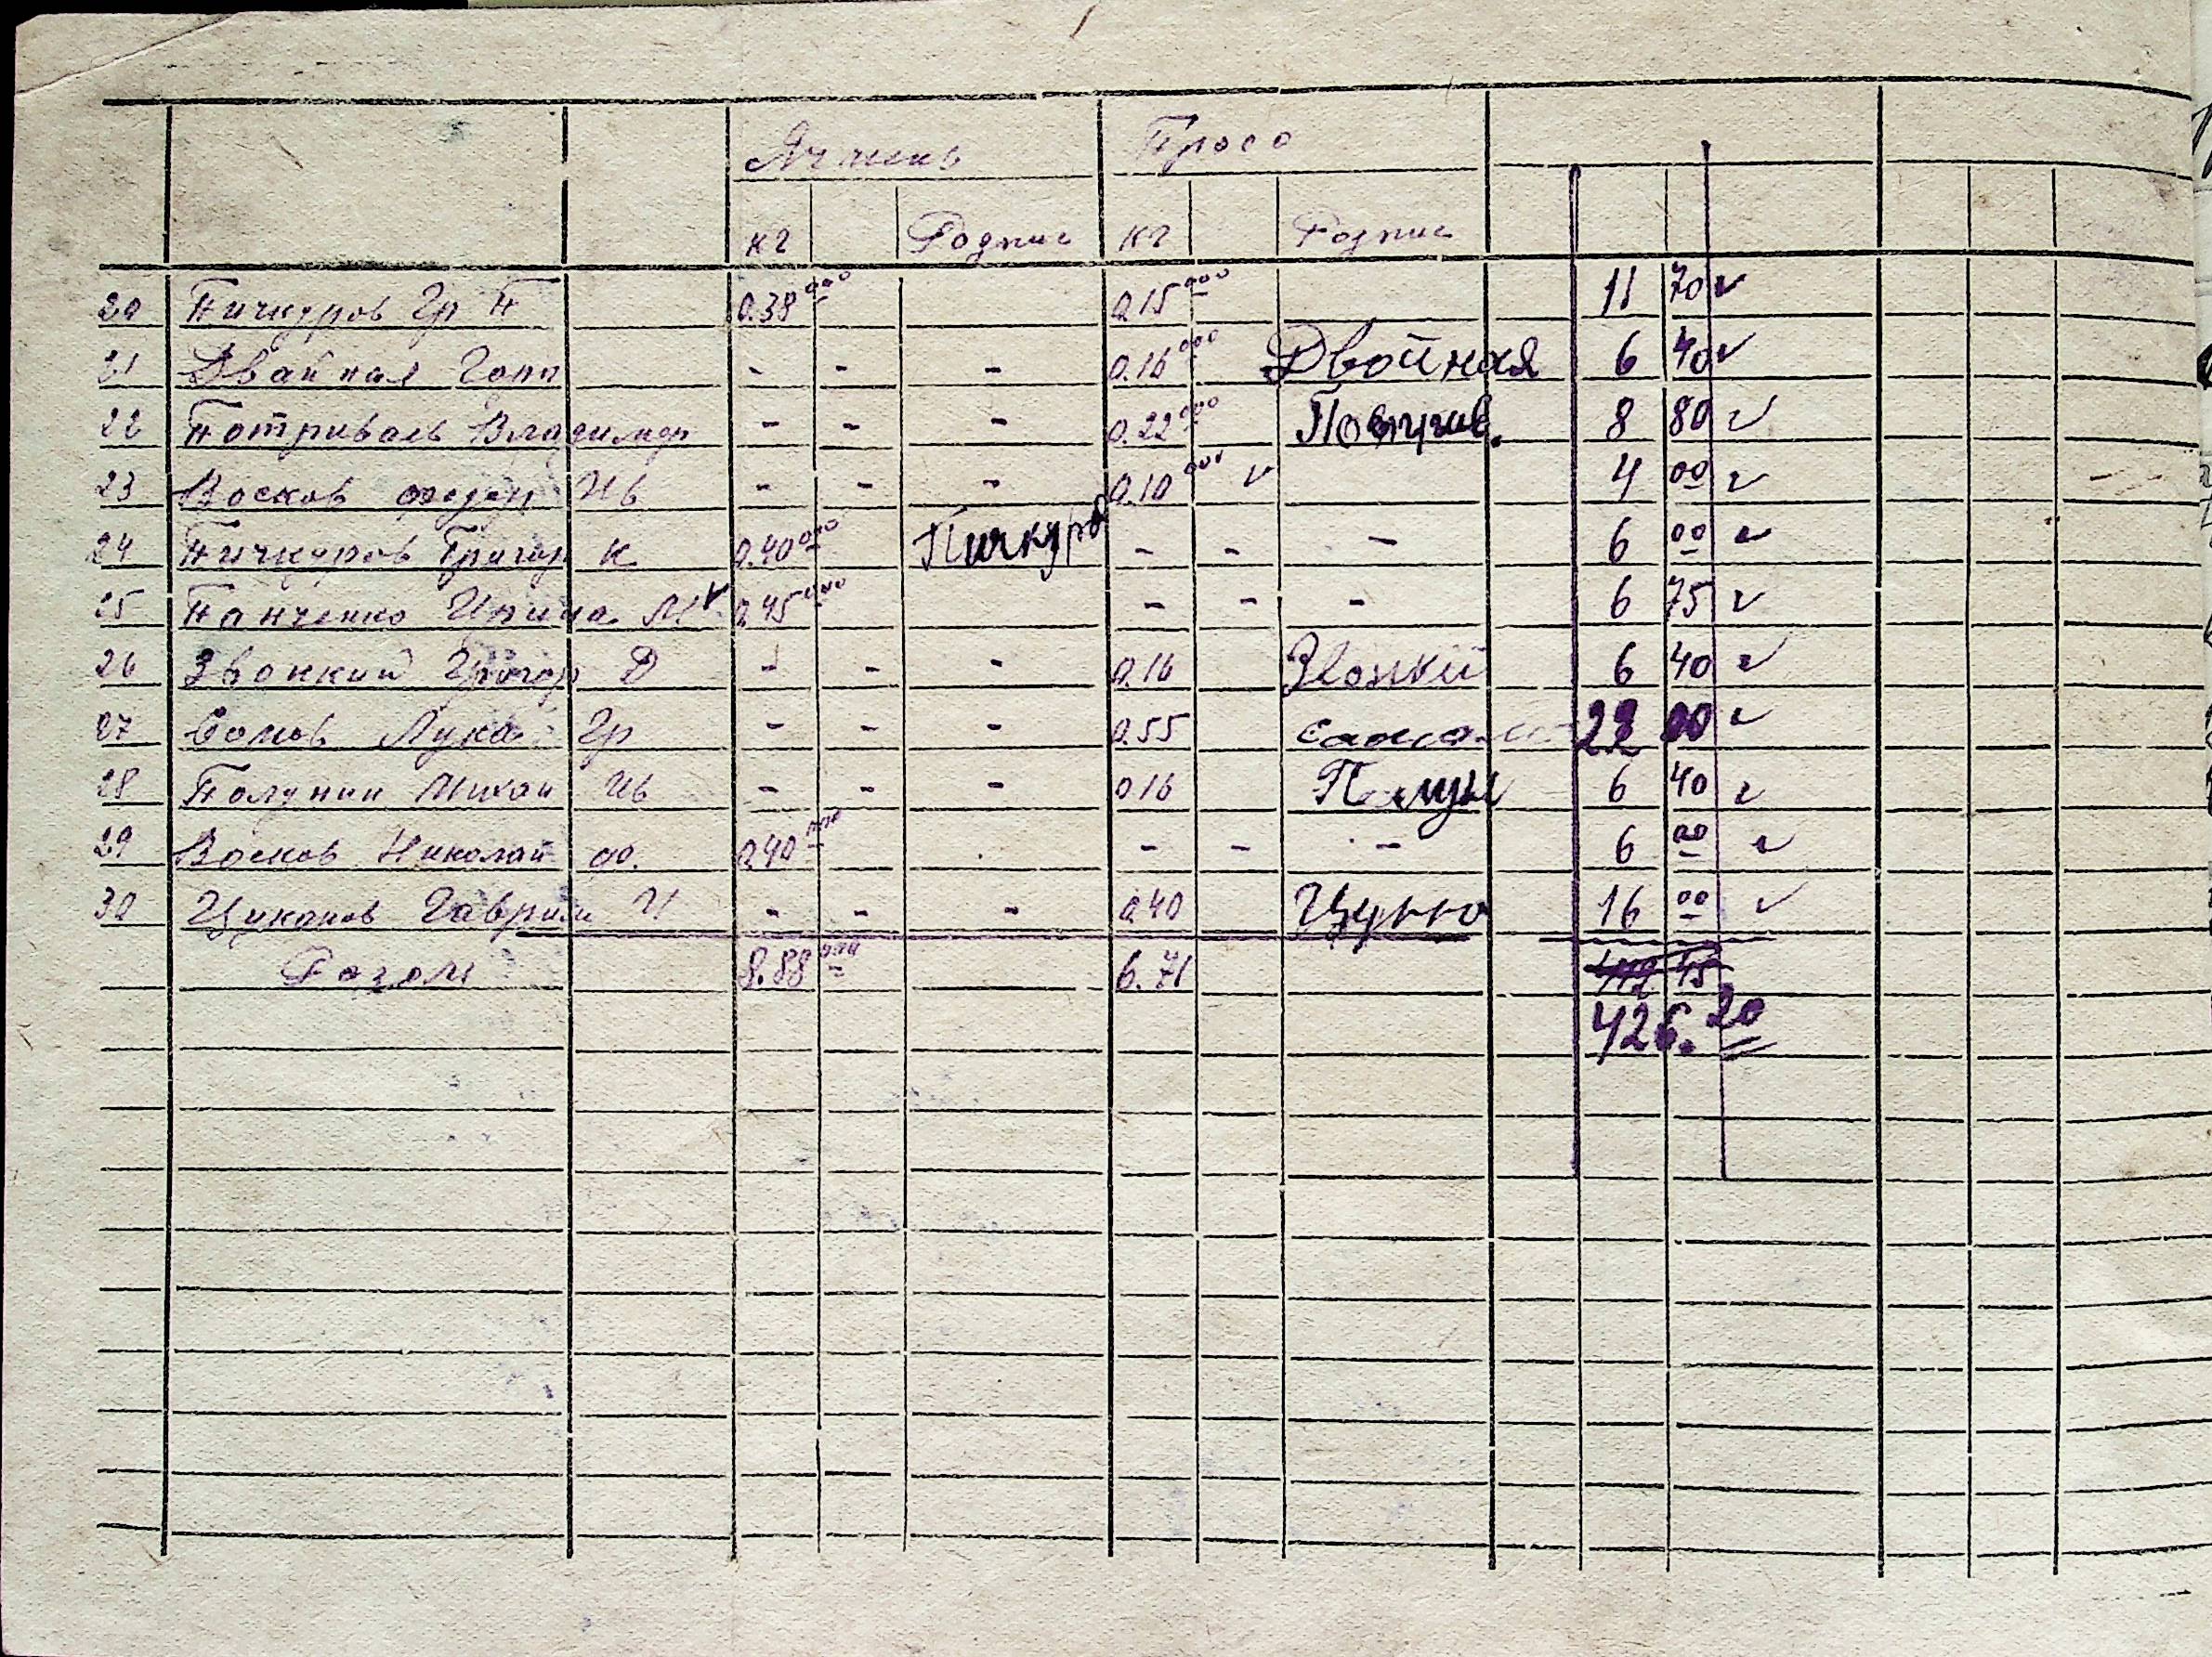 Ячмень Просо
кг Роспис кг Роспис
20 Пичкуров Гр П 0.38 000 0.15 000 11 70 ✓
21 Двайная - - - 0.16 000 Двойная 6 40 ✓
22 Потриваев Владимер - - - 0.22 000 Потрив. 8 80 ✓
23 Восков Федор Ив - - - 0.10 000 ✓ 4 00 ✓
24 Пичкуров Григор К 0.40 000 Пичкуров - - - 6 00 ✓
25 Панченко Ирина М ✓ 0.45 000 - - - 6 75 ✓
26 Звонкий Григор Д - - - 0.16 Звонкий 6 40 ✓
27 Сомов Лука Гр - - - 0.55 22 00 ✓
28 Полунин Михаи Ив - - - 0 16 Полун 6 40 ✓
29 Восков Николай Ф. 0.40 000 - - - 6 00 ✓
30 Цуканов Гаврил И - - - 0.40 16 00 ✓
Разом 8.88 000 6.71
426. 20